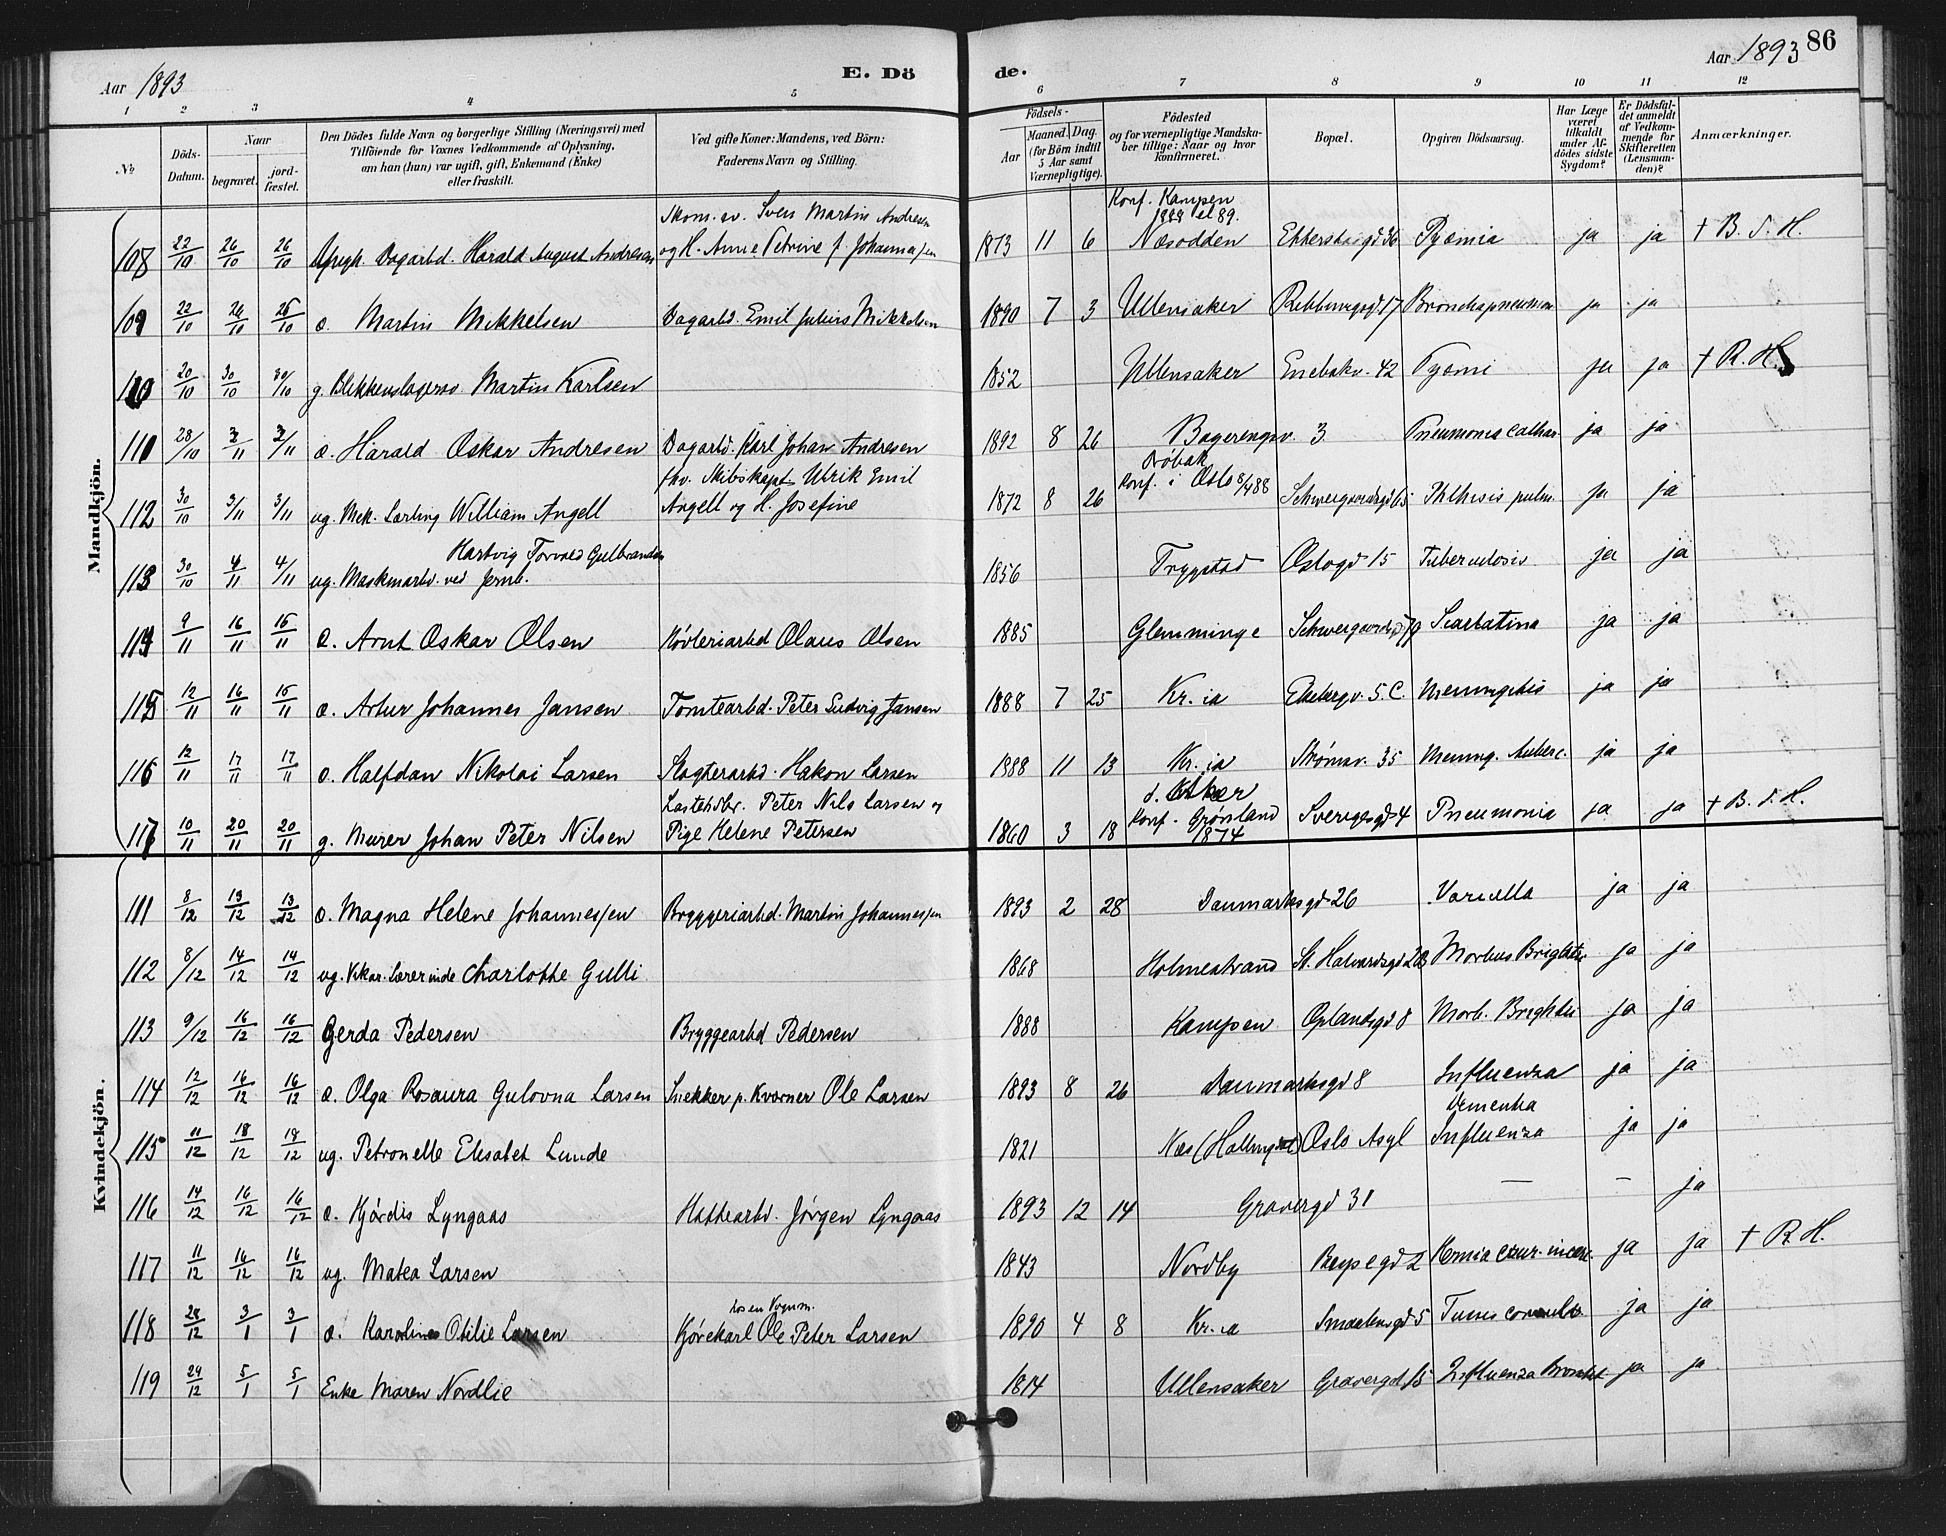 Aar 1893
E. Dö
de.
Aar 1893
86
1 2 3 4 5 6 7 8 9 10 11 12
No
Döds-Datum.
Naar
begravet.
jord-fæstet.
Den Dödes fulde Navn og borgerlige Stilling (Næringsvei) med
Tilföiende for Voxnes Vedkommende af Oplysning,
om han (hun) var ugift, gift, Enkemand (Enke)
eller fraskilt.
Ved gifte Koner: Mandens, ved Börn:
Faderens Navn og Stilling.
Födsels-
Aar
Maaned. Dag.
(for Börn indtil
5 Aar samt
Værnepligtige).
Födested
og for værnepligtige Mandska-
ber tillige: Naar og hvor
konfirmeret.
Bopæl.
Opgiven Dödsaarsag.
Har Læge
været
tilkaldt
under Af-
dödes sidste
Sygdom?
Er Dödsfal-
det anmeldt
af Vedkom-
mende for
Skifteretten
(Lensman-
den)?
Anmærkninger.
Mandkjön.
Skom. sv. Sven Martin Andresen
Konf. Kampen
1888 el 89.
108 22/10 26/10 26/10 Dagarbd. Harald August Andresen og H. Anne Petrine f. Johannasen 1873 11 6 Næsodden 36 Pyæmia ja ja + B. S. H.
109 22/10 26/10 26/10 o. Martin Mikkelsen Dagarbd. Emil Julius Mikkelsen 1890 7 3 Ullensaker 17 Bronchopneumon ja ja
110 20/10 30/10 30/10 g. Blikkenslagersv Martin Karlsen 1852 Ullensaker Enebakv. 42 Pyæmi ja ja + R. H.
110 28/10 2/11 2/11 o. Harald Oskar Andresen Dagarbd. Karl Johan Andresen 1892 8 26 Bagerengsv. 3 Pneumonia cathar. ja ja
fhv. Skibskapt. Ulrik Emil
Drøbak
Konf. i Oslo 8/4 88
112 30/10 3/11 3/11 ug. Mek. Lærling William Angell Angell og H. Josefine 1872 8 26 Schweigaardsgd 65 Phthisis pulm. ja ja
Hartvig Torvald Gulbrandsen
113 30/10 4/11 4/11 ug. Maskinarbd. ved Jernb. 1856 Trygstad Oslogd 15 Tuberculosis ja ja
114 9/11 16/11 16/11 o. Arnt Oskar Olsen Høvleriarbd Olaus Olsen 1885 Glemminge Schweigaardsgd 79 Scarlatina ja ja
115 12/11 16/11 16/11 o. Artur Johannes Jansen Tomtearbd. Peter Ludvig Jansen 1888 7 25 Kr.ia Ekebergv. 5. C. Meningitis ja ja
116 12/11 17/11 17/11 o. Halfdan Nikolai Larsen Slagterarbd. Hakon Larsen 1888 11 13 Kr.ia Strømsv. 35 Mening. tuberc. ja ja
Peter Nils Larsen og
Konf. Grønland
1874
117 10/11 20/11 20/11 g. Murer Johan Peter Nilsen Pige Helene Petersen 1860 3 18 Sverigesgd 4 Pneumonia ja ja + B. S. H.
Kvindekjön.
111 8/12 13/12 13/12 o. Magna Helene Johannessen Bryggeriarbd. Martin Johannessen 1893 2 28 Danmarksgd 26 Varicella ja ja
112 8/12 14/12 14/12 ug. Vikar. Lærerinde Charlotte Gulli 1868 Holmestrand St. Halvardsgd Morbus Brightii ja ja
113 9/12 16/12 16/12 Gerda Pedersen Bryggearbd Pedersen 1888 Kampen Oplandsgd 8 Morb. Brightii ja ja
114 12/12 16/12 16/12 o. Olga Rosaura Gulovna Larsen Snekker p. Kværner Ole Larsen 1893 8 26 Danmarksgd 8 Influenza ja ja
Dementia
115 11/12 18/12 18/12 ug. Petronelle Elisabet Lunde 1821 Næs (Hallingdal) Oslo Asyl Influenza ja ja
116 14/12 16/12 16/12 o. Hjørdis Lyngaas Hattearbd. Jørgen Lyngaas 1893 12 14 Gravergd 31 — — ja
117 11/12 16/12 16/12 ug. Matea Larsen 1843 Nordby 2 Hernia crur. incarc. ja ja + R. H.
hos en Vognm.
118 28/12 3/1 3/1 o. Karoline Otilie Larsen Kjørekarl Ole Peter Larsen 1890 4 8 Kr.ia Smaalensgd 5 Tussis convuls. ja ja
119 29/12 5/1 5/1 Enke Maren Nordlie 1814 Ullensaker Gravergd 15 Influenza Bronchit ja ja